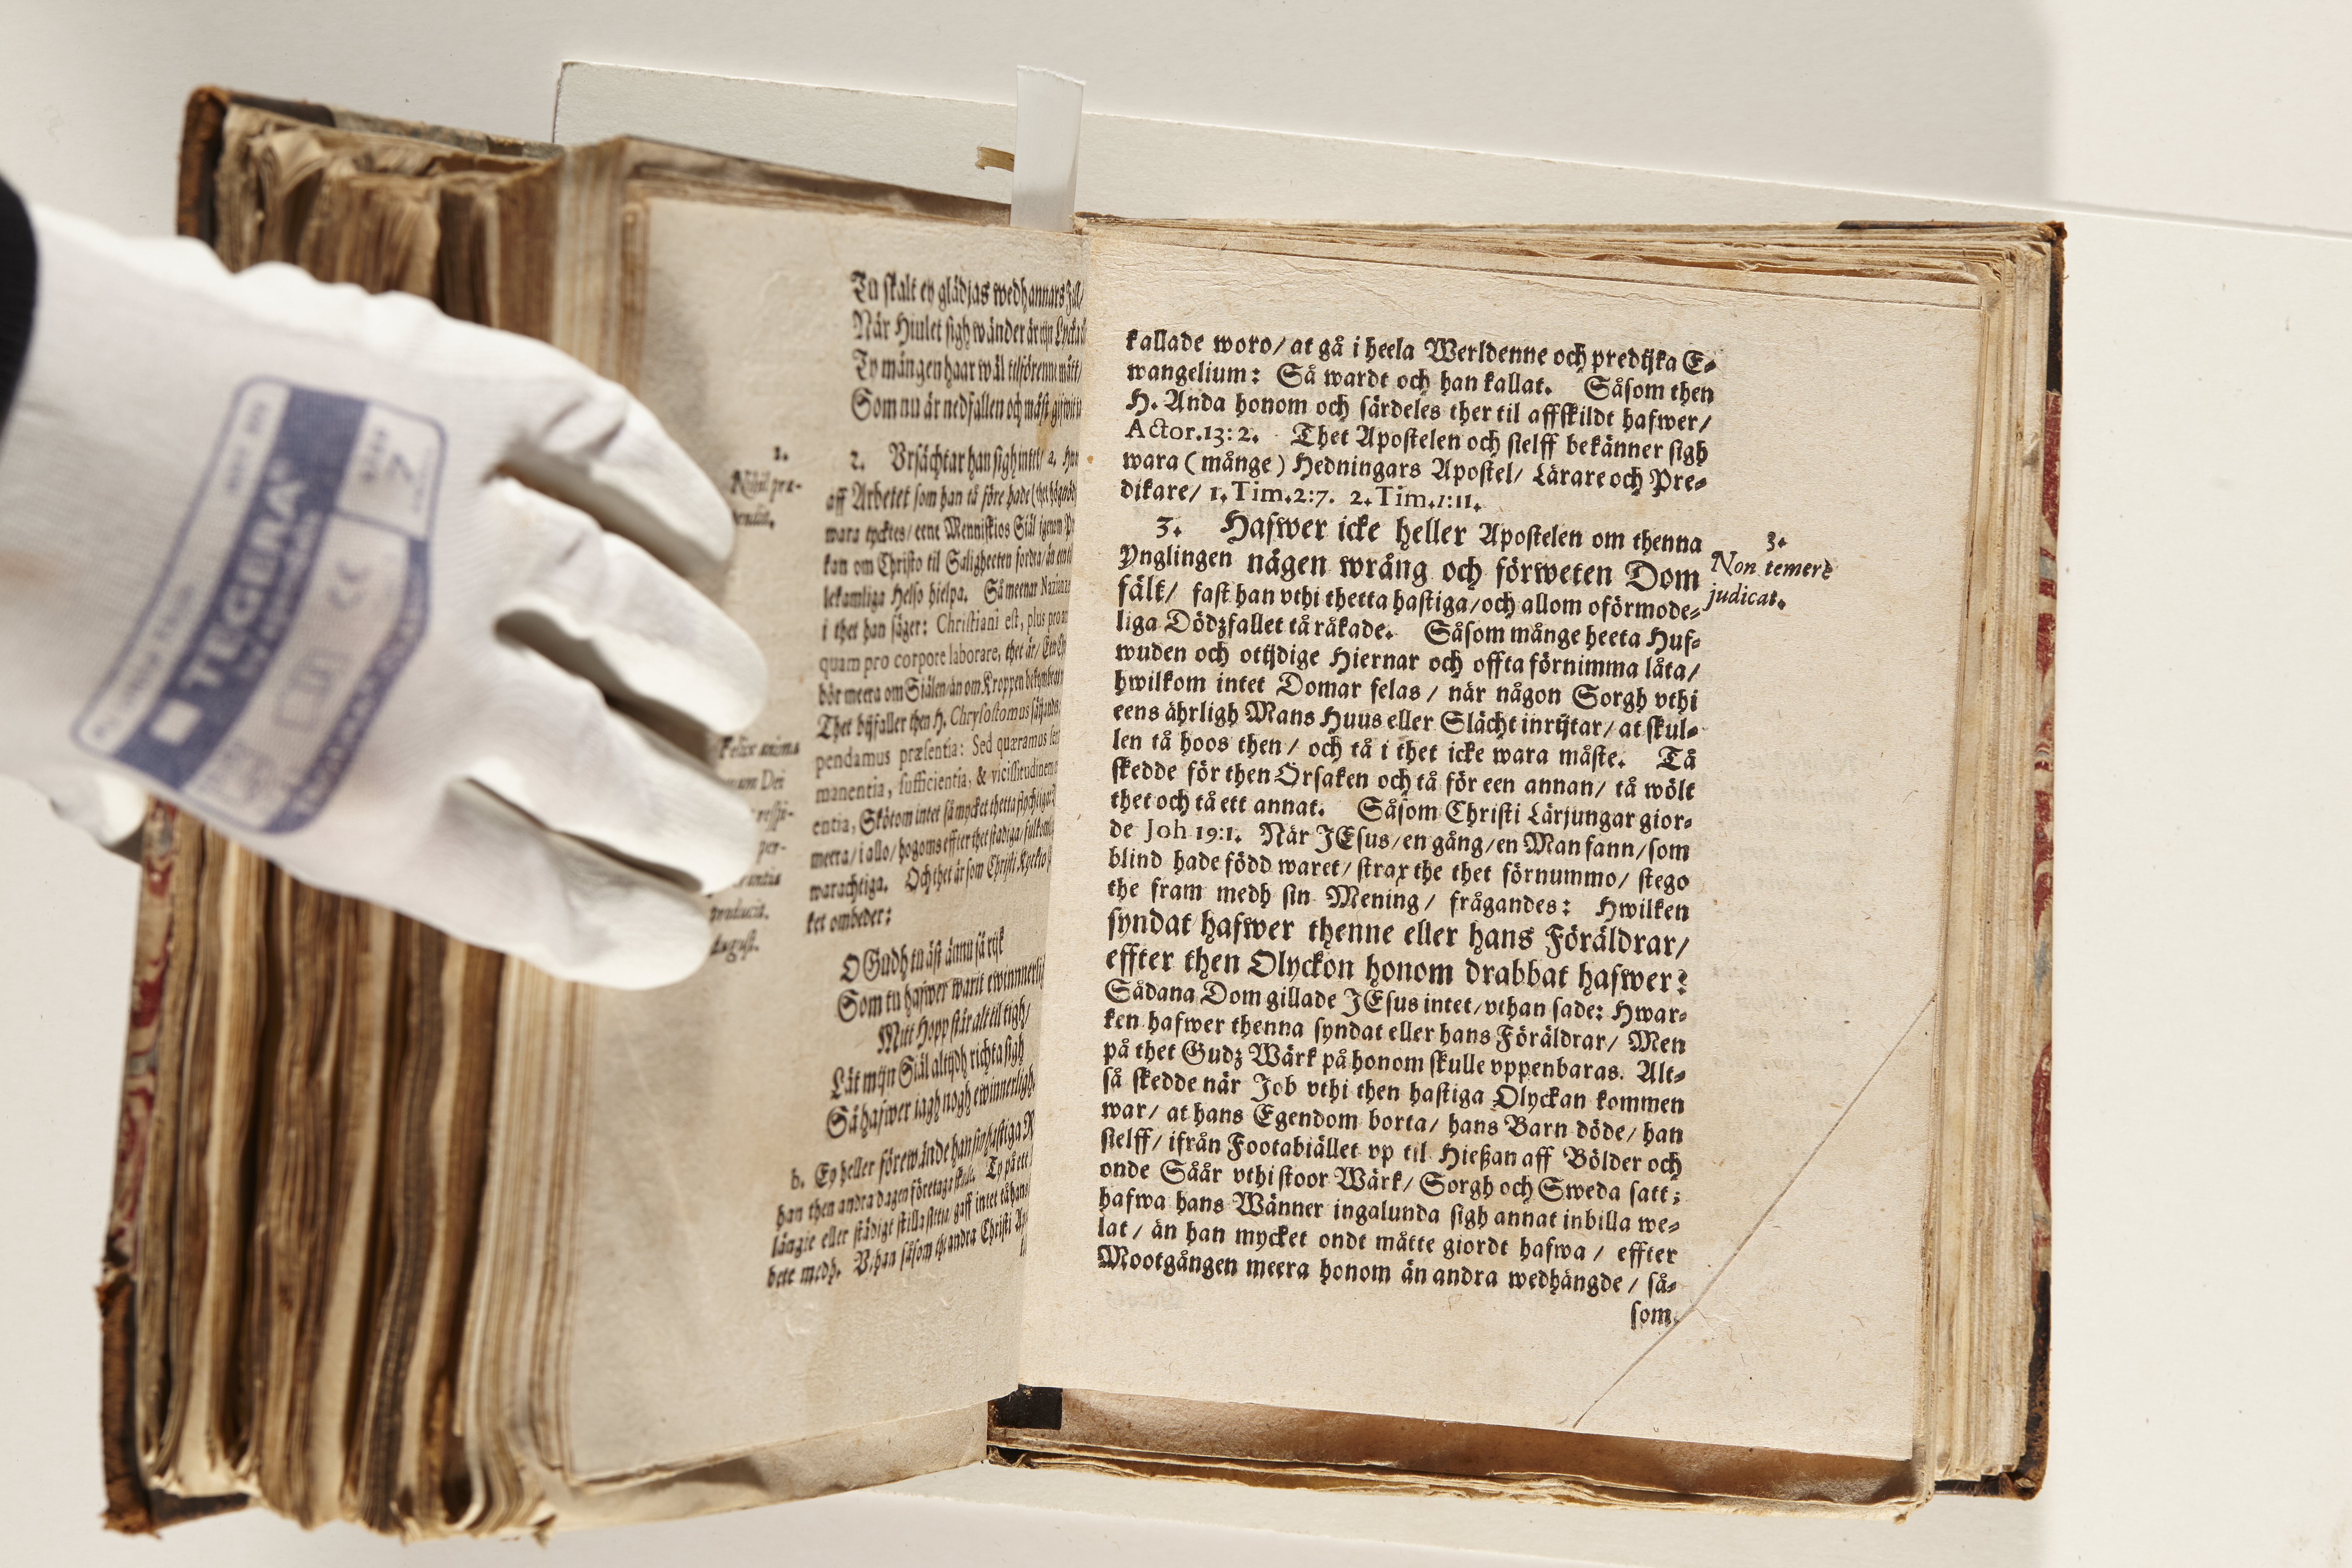 Tu skalt ey glädjas wedh annars Fall/
När Hiulet sigh wänder är tijn Lycka
Ty mången haar wäl tilförenne mått/
Som nu är nedfallen och måst
1.
Nihil præ-
2. Vrsächtar han sigh intet/ a.
aff Arbetet som han tå före hade (thet högnöd
wara tycktes/ eene Menniskios Siäl igenom
kan om Christo til Saligheeten fordra/ än een
lekamliga Helso hielpa. Så meenar
i thet han säger: Christiani est, plus pro
quam pro corpore laborare, thet är/
bör meera om Siälen/ än om Kroppen bekymbra
Thet bijfaller then H. Chrysostomus säijandes:
pendamus præsentia: Sed quæramus
manentia, sufficientia, & vicissitudinem
entia, Skötom intet så mycket thetta
meera/ i allo/ hogoms effter thet stadiga/
warachtiga. Och thet är som Christi
ket ombeder:
Felix anima
Dei
August.
O Gudh tu äst ännu så rijk
Som tu hafwer warit ewinnerlig
Mitt Hopp står alt til tigh/
Lät mijn Siäl altijdh richta sigh
Så hafwer iagh nogh ewinnerligh.
b. Ey heller förewände han sin hastiga
han then andra dagen företaga skulle. Ty på ett
längie eller städigt stilla sittia/ gaff intet tå hans
bete medh. Vthan såsom the andra Christi
kallade woro/ at gå i heela Werldenne och predijka E-
wangelium: Så wardt och han kallat. Såsom then
H. Anda honom och särdeles ther til affskildt hafwer/
Actor.13:2. Thet Apostelen och sielff bekänner sigh
wara (månge) Hedningars Apostel/ Lärare och Pre-
dikare/ 1. Tim.2:7. 2. Tim.1:11.
3. Hafwer icke heller Apostelen om thenna
Ynglingen någen wrång och förweten Dom
fält/ fast han vthi thetta hastiga/ och allom oförmode-
liga Dödzfallet tå råkade. Såsom månge heeta Huf-
wuden och otijdige Hiernar och offta förnimma låta/
hwilkom intet Domar felas/ när någon Sorgh vthi
eens ährligh Mans Huus eller Slächt inrijtar/ at skul-
len tå hoos then/ och tå i thet icke wara måste. Tå
skedde för then Orsaken och tå för een annan/ tå wölt
thet och tå ett annat. Såsom Christi Lärjungar gior-
de Joh 19:1. När JEsus/ en gång/ en Man fann/ som
blind hade född waret/ strax the thet förnummo/ stego
the fram medh sin Mening/ frågandes: Hwilken
syndat hafwer thenne eller hans Föräldrar/
effter then Olyckon honom drabbat hafwer?
Sådana Dom gillade JEsus intet/ vthan sade: Hwar-
ken hafwer thenna syndat eller hans Föräldrar/ Men
på thet Gudz Wärk på honom skulle vppenbaras. Alt-
så skedde när Job vthi then hastiga Olyckan kommen
war/ at hans Egendom borta/ hans Barn döde/ han
sielff/ ifrån Footabiället vp til Hießan aff Bölder och
onde Såår vthi stoor Wärk/ Sorgh och Sweda satt;
hafwa hans Wänner ingalunda sigh annat inbilla we-
lat/ än han mycket ondt måtte giordt hafwa/ effter
Mootgången meera honom än andra wedhängde/ så-
som
3.
Non temerè
judicat.
TEGERA